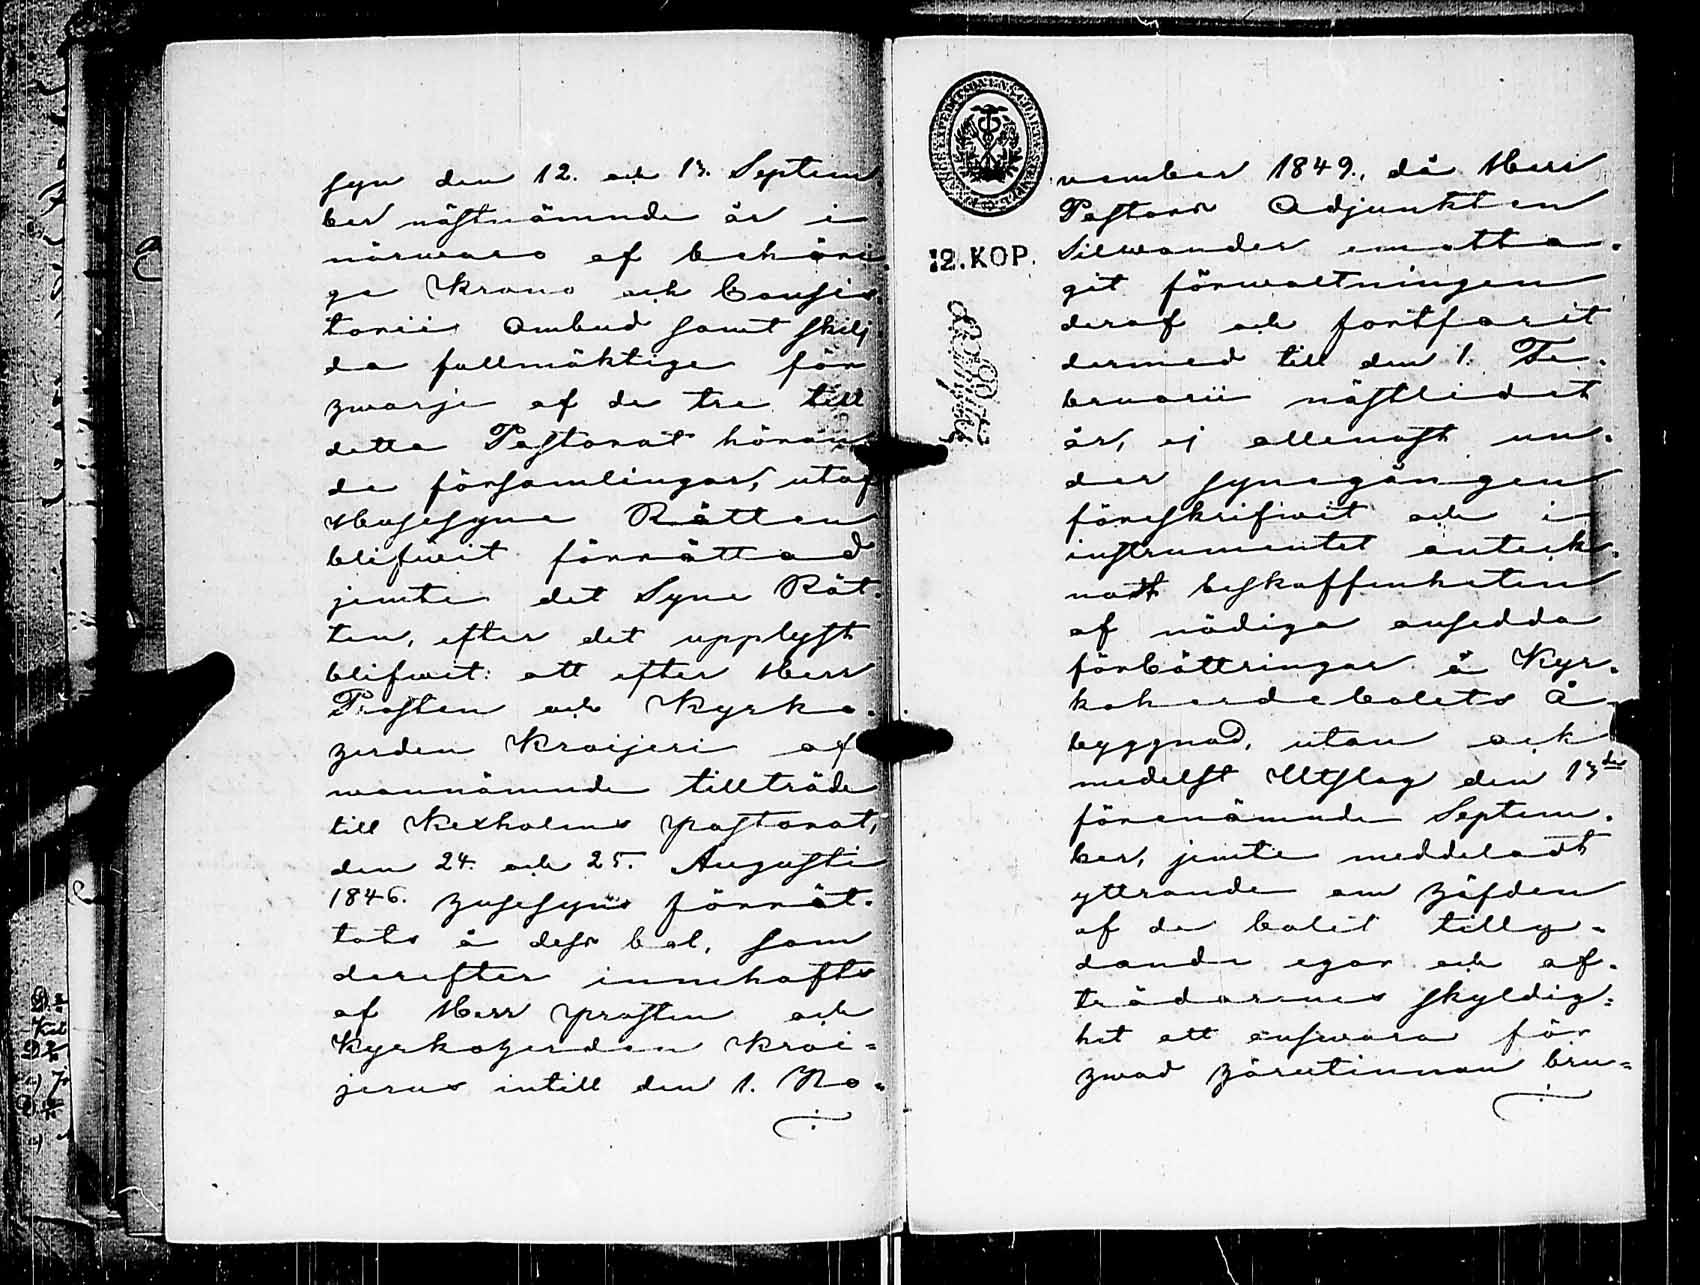 syn den 12. och 13. Septem
ber nästnämnde år i
närwaro af behöri-
ge Krono och Consis-
torii Ombud samt skilj
da fullmäktige för
hwarje af de tre till
detta Pastorat höran
de församlingar, utaf
Husesyne Rätten
blifwit förrättad
jemte det Syne Rät-
ten, efter det upplyst
blifwit: att efter Herr
Prosten och Kyrko-
herden Kroijeri of
wannämnde tillträde
till Kexholms pastorat,
den 24. och 25. Augusti
1846. husesyns förrät-
tats å dess bol, som
derefter innehafts
af Herr prosten och
Kyrkoherden Kroi=
jerus intill den 1. No=
vember 1849., då Herr
Pastors Adjunkten
Silwander emotta-
git förwaltningen
deraf och fortfarit
dermed till den 1. Fe-
bruarii nästledet
år, ej allenast un-
der synegången
föreskrifwit och i
instrumentet anteck-
nadt beskaffenheten
af nödiga ansedda
förbättringar å Kyr-
koherdebolets Å-
byggnad, utan ock
medelst Utslag den 13de
förenämnde Septem-
ber, jemte meddeladt
yttrande om häfden
af de bolet tilly-
dande egor och af-
trädarenes skyldig=
het att answara för
hwad härutinnan bru=
12. KOP.